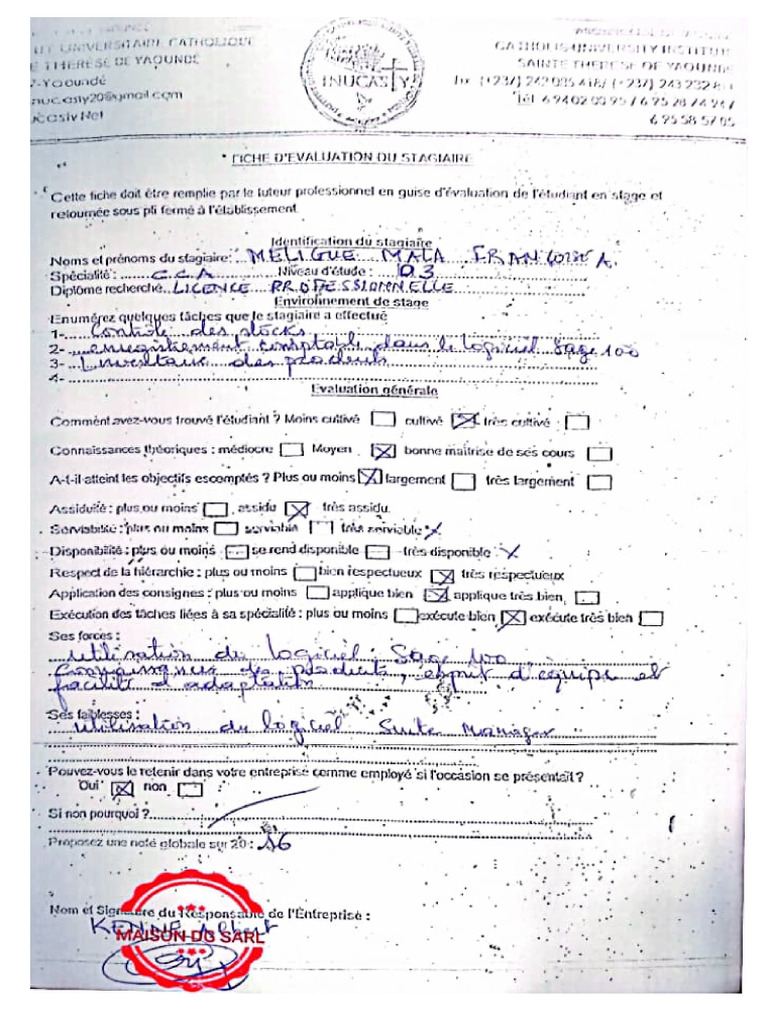 UNIVERSITAIRE CATHOLIQUE
THERESE DE YAOUNDÉ
Yaoundé
CATHOLIC UNIVERSITY INSTITUTE
SAINTE THERESE OF YAOUNDE
INUCASTY
FICHE D'EVALUATION DU STAGIAIRE
Cette fiche doit être remplie par le tuteur professionnel en guise d'évaluation de l'étudiant en stage et
retournée sous pli fermé à l'établissement
Identification du stagiaire
Noms et prénoms du stagiaire: MELIGUE MALA
Spécialité : C.C.A Niveau d'étude : 03
Diplôme recherché LICENCE PROFESSIONNELLE
Environnement de stage
Enumérez quelques tâches que le stagiaire a effectué
1- Contrôle des stocks
2- enregistrement comptable dans le logiciel Sage 100
3- des produits
4-
Evaluation générale
Comment avez-vous trouvé l'étudiant ? Moins cultivé cultivé très cultivé
Connaissances théoriques : médiocre Moyen bonne maitrise de ses cours
A-t-il atteint les objectifs escomptés ? Plus ou moins largement très largement
Assiduité : plus ou moins assidu très assidu
Serviabilité : plus ou moins serviable très serviable
Disponibilité : plus ou moins se rend disponible très disponible
Respect de la hiérarchie : plus ou moins bien respectueux très respectueux
Application des consignes : plus ou moins applique bien applique très bien
Exécution des tâches liées à sa spécialité : plus ou moins exécute bien exécute très bien
Ses forces :
utilisation du logiciel Sage 100
Connaissances des produits, esprit d'équipe et
facilité d'adaptation
Ses faiblesses :
utilisation du logiciel Suite Manager
Pouvez-vous le retenir dans votre entreprise comme employé si l'occasion se présentait ?
Oui non
Si non pourquoi ?
Proposez une note globale sur 20 : 16
Nom et Signature du Responsable de l'Entreprise :
KENNE Albert
MAISON DG SARL